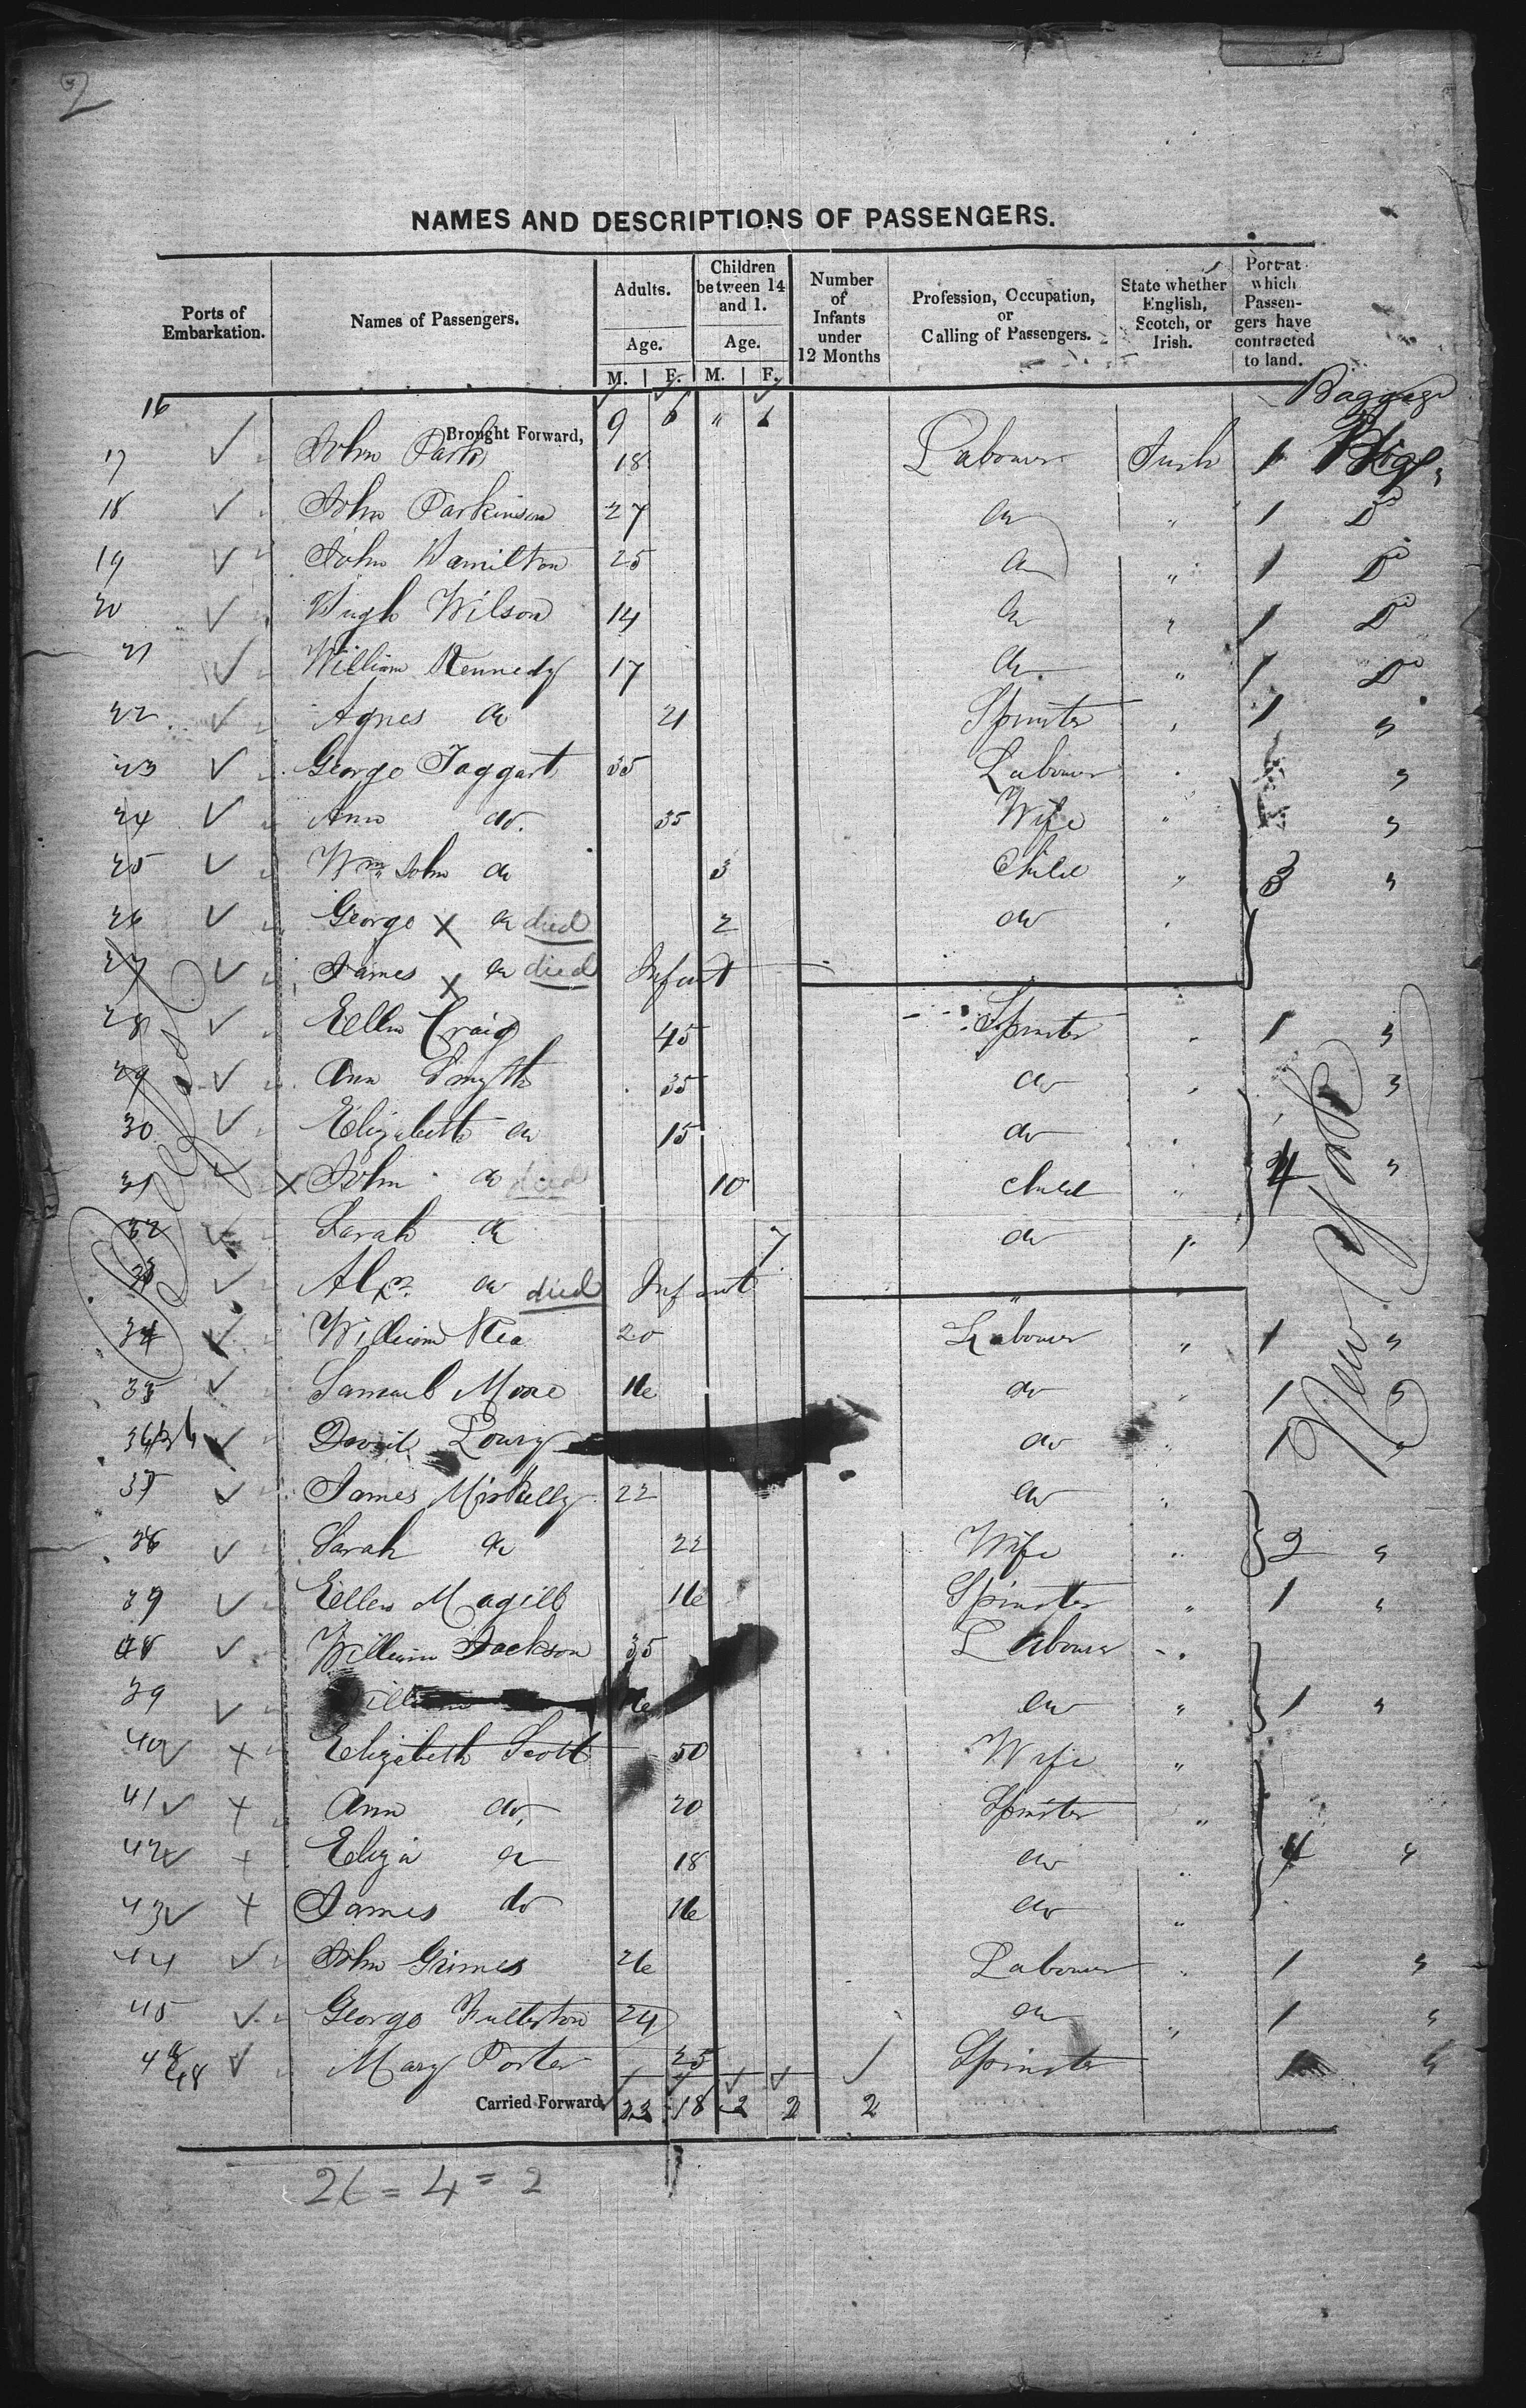 2
NAMES AND DESCRIPTIONS OF PASSENGERS.
Ports of Embarkation. Names of Passengers. Adults. Age. M. F. Children between 14 and 1. Age. M. F. Number of Infants under 12 Months Profession, Occupation, or Calling of Passengers. State whether English, Scotch, or Irish. Port at which Passengers have contracted to land.
Baggage
16 Brought Forward, 9 6 " 6
17 John Park 18 Labourer Irish 1
18 John Parkinson 27 do " 1 Do
19 John Hamilton 25 do " 1 Do
20 Hugh Wilson 14 do " 1 Do
21 William Kennedy 17 do " 1 Do
22 Agnes do 21 Spinster " 1 "
23 George Taggart 35 Labourer " "
24 Ann do. 35 Wife " "
25 Wm. John do 3 Child " 3 "
26 George X do died 2 do "
27 James X do died Infant
28 Ellen Craig 45 Spinster " 1 "
29 Ann Smyth 35 do " "
30 Elizabeth do 15 do "
31 X John do died 10 child " 4 "
32 Sarah do 7 do "
33 Alexr. do died Infant "
34 William Rea 20 Labourer " 1 "
35 Samuel Moore 16 do " 1 "
36 David Lowry do " 1 "
37 James Miskelly 22 do "
38 Sarah do 22 Wife " 2 "
39 Ellen Magill 16 Spinster " 1 "
William Jackson 35 Labourer "
39 William 16 do " 1 "
40 Elizabeth Scott 50 Wife "
41 Ann do, 20 Spinster "
42 Eliza do 18 do " 4 "
43 James do 16 do "
44 John Grimes 26 Labourer " 1 "
45 George Fullerton 24 do " 1 "
48 Mary Porter 25 Spinster 1 "
Carried Forward, 23 18 2 2 2
26 = 4 = 2
Belfast
New York